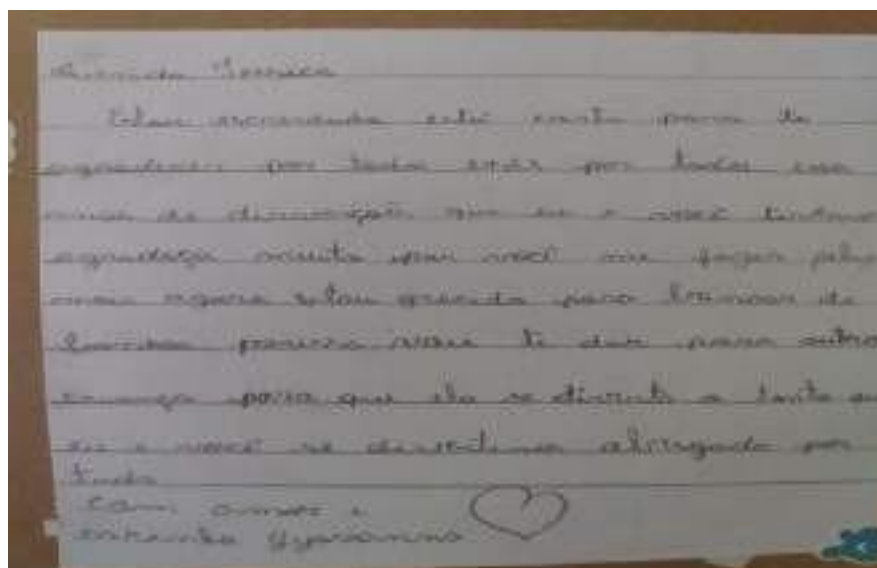 Querida Boneca
Estou escrevendo esta carta para te
agradecer por todos por todos
de diversão que eu e você tivemos
agradeço muito por você me fazer
mas agora estou grande para brincar de
boneca vou te dar para outra
criança para que ela se divirta o tanto que
eu e você se divertimos obrigada por
tudo
com amor e
carinho